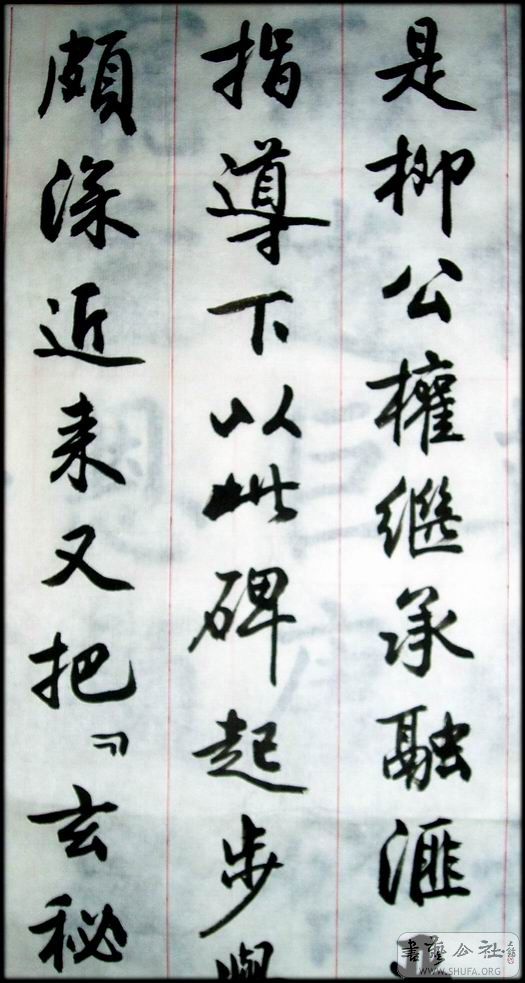 是柳公權繼承融滙
指導下以此碑起步
頗深近来又把『玄秘
書藝公社
WWW.SHUFA.ORG